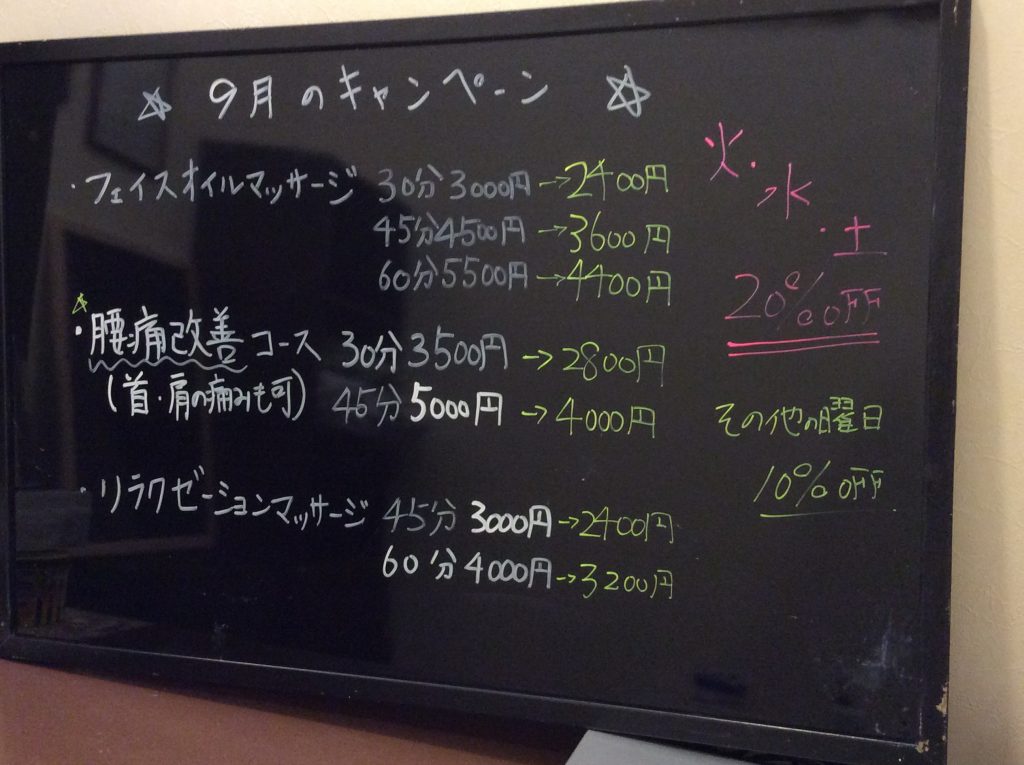 ☆ 9月のキャンペーン ☆
・フェイスオイルマッサージ 30分 3000円→2400円
45分4500円→3600円
60分5500円→4400円
☆
・腰痛改善コース 30分3500円→2800円
(首・肩の痛みも可) 45分5000円→4000円
・リラクゼーションマッサージ 45分 3000円→2400円
60分4000円→3200円
火・水・土
20%OFF
その他の曜日
10%OFF